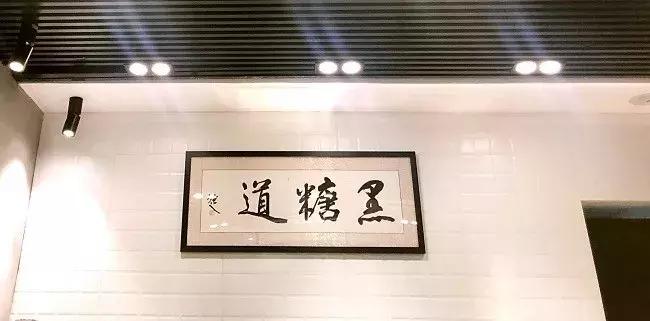 黑糖道